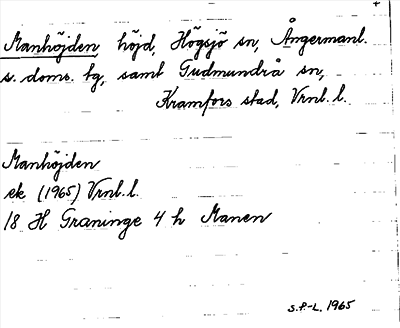 Manhöjden, höjd, Högsjö sn, Ångermanl.
s. doms. tg, samt Gudmundrå sn,
Kramfors stad, Vrnl. l.
Manhöjden
ek (1965) Vrnl. l.
18 H Graninge 4 h Manen
S.P.-L. 1965